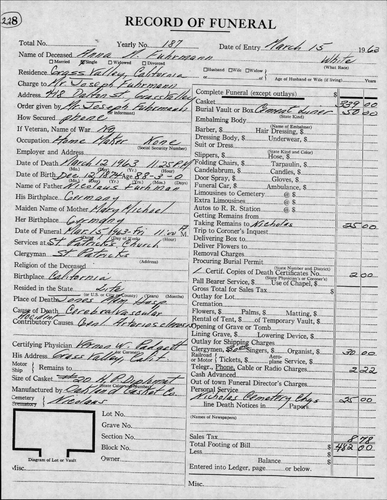 228
RECORD OF FUNERAL
Total No. Yearly No. 187 Date of Entry March 15 1963
Name of Deceased Anna M. Fuhrmann White
Married Single Widowed Divorced Husband Wife Widow (What Race)
Residence Grass Valley, California Age of Husband or Wife (if living) Years
Charge to Mr. Joseph Fuhrmann Complete Funeral (except outlays) $
Address 418 Grass Valley Casket 339 00
Order given by Mr. Joseph Fuhrmann Burial Vault or Box Cement Liner 50 00
How Secured phone (State Kind)
Embalming Body $
If Veteran, Name of War No (Name of Embalmer)
Barber, $ Hair Dressing, $
Occupation Home Maker None Dressing Body, $ Underwear, $
(Social Security Number) Suit or Dress $
Employer and Address (State Kind and Color)
Slippers, $ Hose, $
Date of Death March 12 1963 11:25 P.M. Folding Chairs, $ Tarpaulin, $
Date of Birth Dec. 12 1874 88-3-0 Candelabrum, $ Candles, $
Door Spray, $ Gloves, $
Name of Father Nicolaus Fuhrman Funeral Car, $ Ambulance, $
His Birthplace Germany Limousines to Cemetery @ $
Extra Limousines @ $
Maiden Name of Mother Mary Michael Autos to R. R. Station @ $
Her Birthplace Germany Getting Remains from
Taking Remains to Nicholas 25 00
Date of Funeral Mar 15 1963-Fri 11:00 Trip to Coroner's Request
Services at St Patricks Church Delivering Box to
Deliver Flowers to
Clergyman St Patricks Removal Charges
Religion of the Deceased Procuring Burial Permit
(State Number and District)
Birthplace California 1 Certif. Copies of Death Certificates No. 2 00
Resided in the State Life Pall Bearer Service, $ Use of Chapel, $
Gross Total for Sales Tax
Place of Death Jones Hosp Outlay for Lot
Cause of Death Cerebralvascular Cremation
Flowers, $ Palms, $ Matting, $
Contributory Causes Gen. Arteriosclerosis Rental of Tent, $ of Temporary Vault, $
Opening of Grave or Tomb
Certifying Physician Vernon W. Padgett Lining Grave, $ Lowering Device, $
Outlay for Shipping Charges
His Address Grass Valley Calif Clergyman, $ Singers, $ Organist, $ 30 00
Railroad or Motor Tickets, $ Aeroplane Service, $
Motor Ship Remains to Telegr., Phone, Cable or Radio Charges 2 22
Size of Casket Cash Advanced
Out of town Funeral Director's Charges
Manufactured by Oakland Casket Co. Personal Service
Cemetery Crematory Nicolaus Nicholas Cemetery Chgs 25 00
line Death Notices in Papers
(Names of Newspapers)
Lot No.
Grave No.
Section No. Sales Tax 8 78
Block No. Total Footing of Bill $ 482 00
Less
Owner Balance $
Diagram of Lot or Vault Entered into Ledger, page or below.
Misc. Misc.